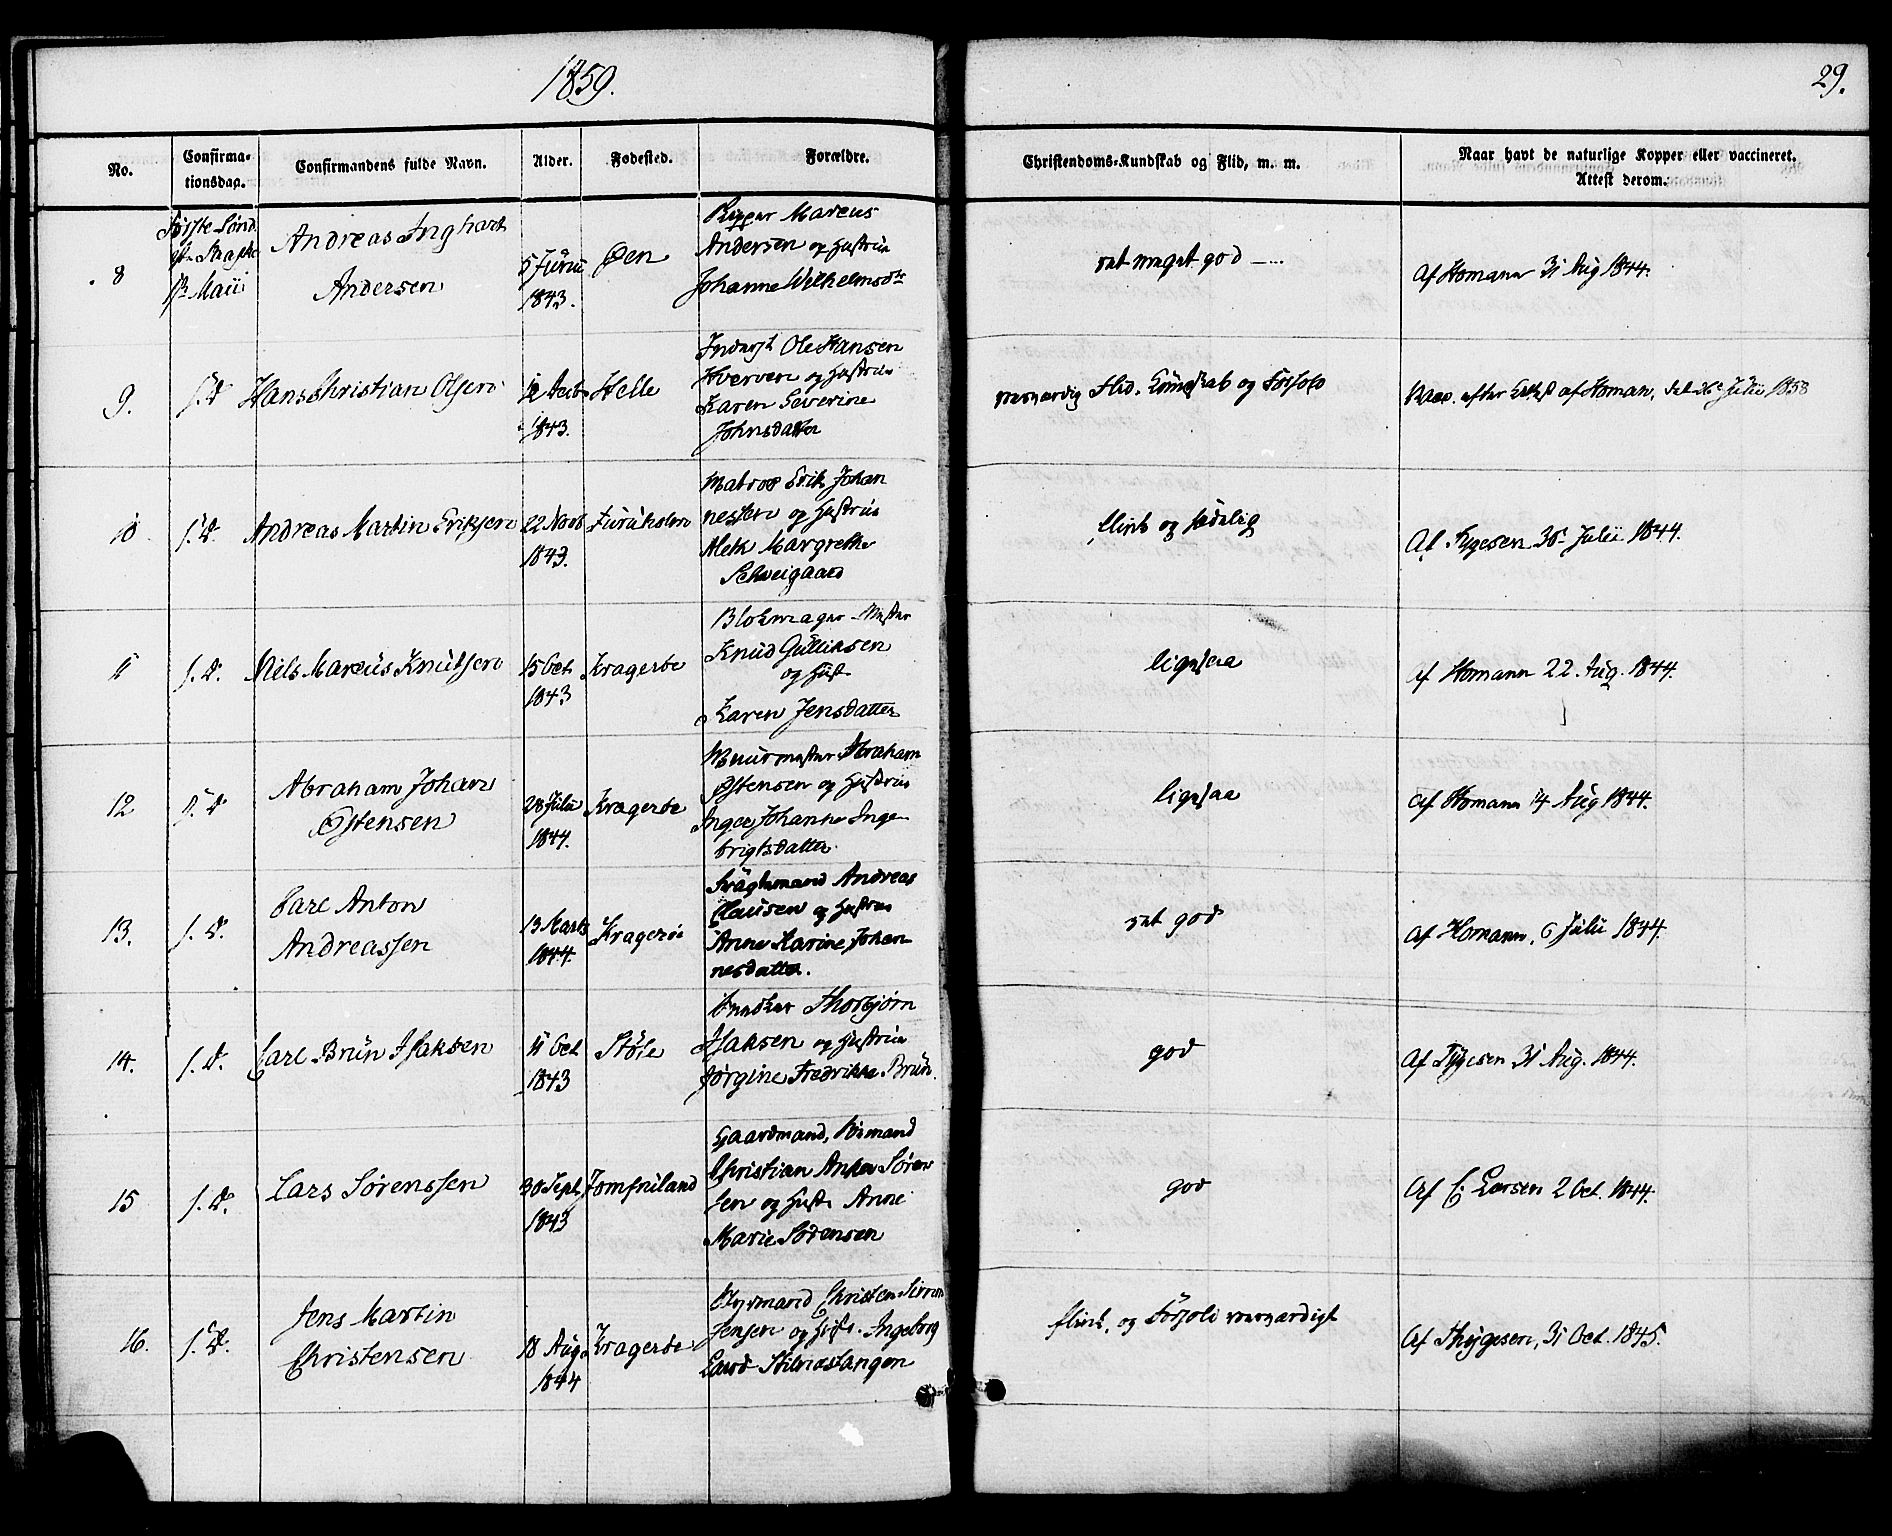 1859.
29.
No.
Confirma-
tionsdag.
Confirmandens fulde Navn.
Alder.
Fødested.
Forældre.
Christendoms-Kundskab og Flid, m. m.
Naar havt de naturlige Kopper eller vaccineret.
Attest derom.
8
Første Sønd.
1ste Maii
Andreas Inghart
Andersen
5 Junii
1843.
Øen
Rigger Marcus
Andersen og Hustrue
Johanne Wilhelmsdtr
ret meget god
af Homann 31 Aug 1844.
9.
s. D
Hans Christian Olsen
12 Octb
1843.
Helle
Inderst Ole Hansen
Hverven og Hustrue
Karen Severine
Johnsdatter
roesværdig Flid, Kundskab og Forhold
Vacc. efter Attest af Homan, dat 26 Julii 1858
10
s. D.
Andreas Martin Eriksen
22 Novb
1843.
Furuholm
Matros Erik Johan
nessen og Hustrue
Aleth Margrethe
Schweigaard
flink og sædelig
Af Tygesen 30 Julii 1844.
11
s. D.
Niels Marcus Knutsen
15 Oct
1843
Kragerøe
Blokmager Mester
Knud Gulliksen
og Hust.
Karen Jensdatter
ligesaa
af Homann 22. Aug. 1844.
12
s. D
Abraham Johan
Østensen
28 Julii
1844.
Kragerøe
Muurmester Abraham
Østensen og Hustrue
Inger Johanne Inge
brigtsdatter
ligesaa
af Homann 14 Aug 1844.
13.
s. D.
Carl Anton
Andreassen
13 Marts
1844.
Kragerøe
Andreas
Clausen og Hustrue
Anne Karine Johan
nesdatter.
ret god
af Homann, 6 Julii 1844.
14.
s. D.
Carl Brün Isaksen
11 Oct
1843
Støle
Snedker Thorbjørn
Isaksen og Hustrue
Jørgine Fredrikke Brün.
god
Af Tygesen 31 Aug. 1844.
15
s. D.
Lars Sørenssen
30 Sept
1843
Jomfruland
Gaardmand,
Christian Anker Søren
sen og Hust. Anne
Marie Sørensen
god
Af C. Larsen 2 Oct. 1844.
16.
s. D.
Jens Martin
Christensen
18 Aug.
1844
Kragerøe
Styrmand Christen Simon
Jensen og Hust. Ingeborg
Larsd. Stilnestangen
flink, og Forhold roesværdigt
Af Thygesen, 31 Oct. 1845.